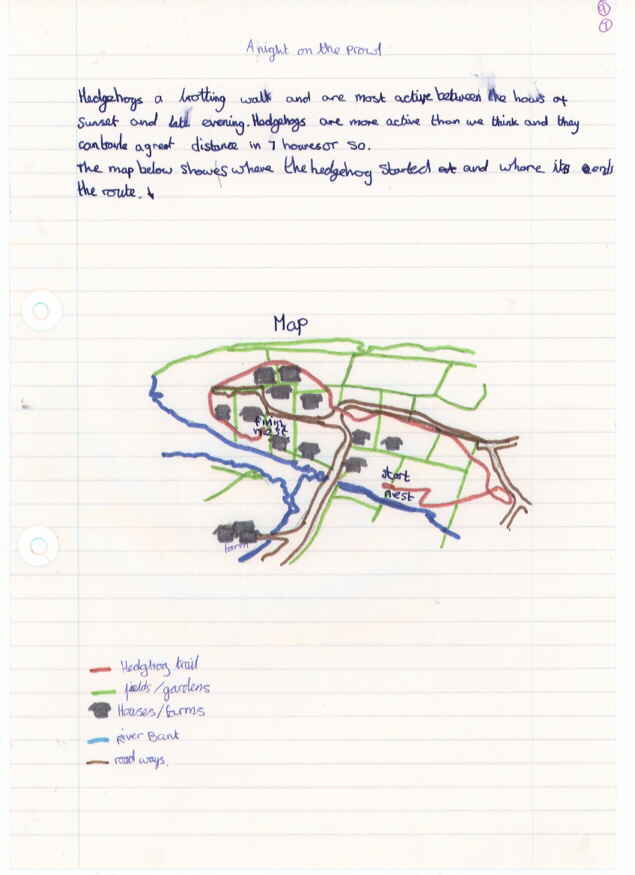 A night on the prowl
Hedgehogs a trotting walk and are most active between the hours of
Sunset and late evening. Hedgehogs are more active than we think and they
a great distance in 7 houres or so.
The map below showes where the hedgehog started and where its ends
the route.
Map
nest
start
nest
farm
Hedghog trail
fields/gardens
Houses/farms
river Bank
road ways.